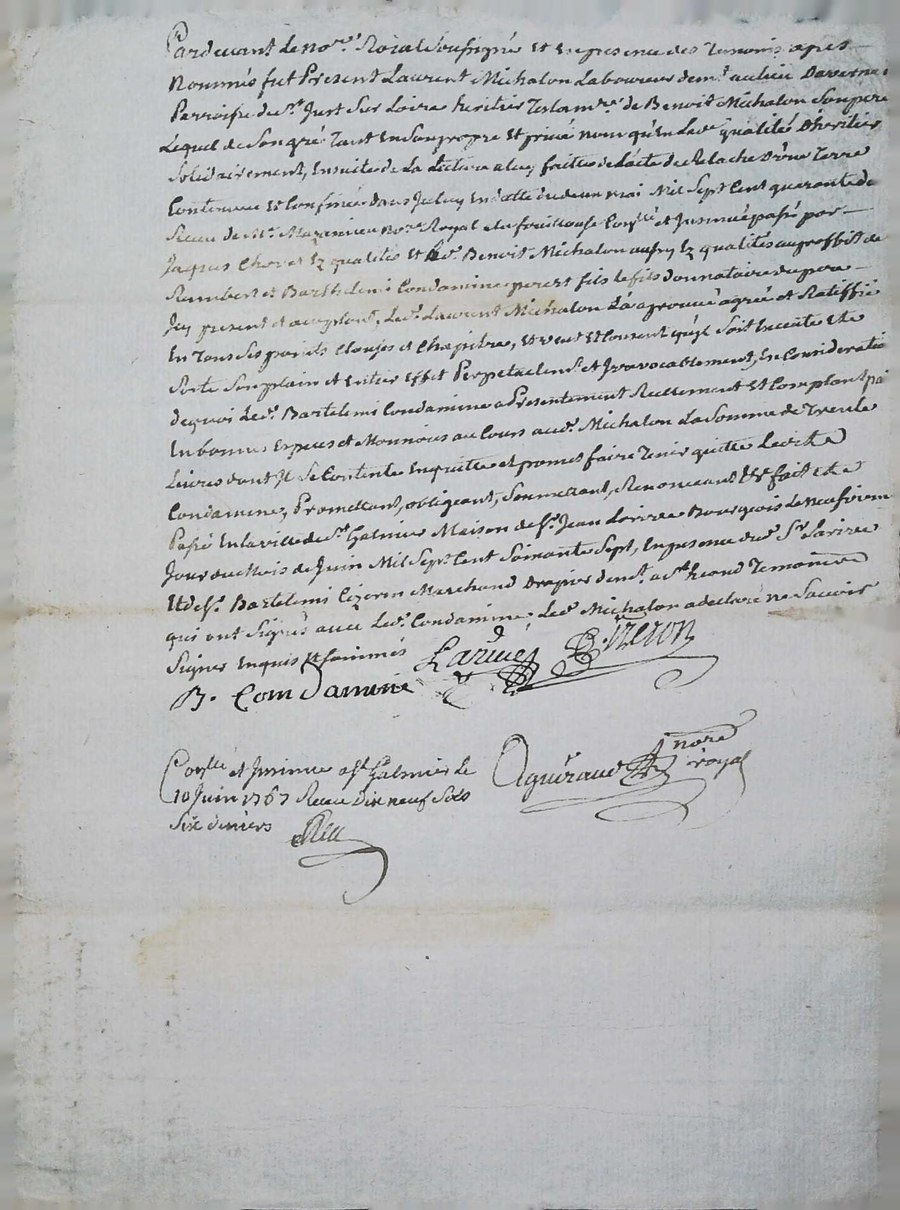 Pardevant le nore. Roial Soussigné et En presence des Temoins apres
Nommés fut Present Laurent Michalon Laboureur demt. au lieu
Parroisse de St. Just Sur Loire heritier Testamre. de Benoit Michalon Son pere
Lequel de Son gré Tant En Son propre Et privé nom qu'En Lade. qualité D'heritier
Solidairement, Ensuite de La Lecture a luy faitte de L'acte de Relache D'une Terre
Contenue Et Confinée dans Jceluy En datte du deux mai Mil Sept Cent quarante
Receu de Me. Mazenieu Nore. Royal a la fouillouse Conllé et Jnsinué passé par
Jaques Chovet Ez qualités Et led. Benoit Michalon aussy Ez qualités au proffit de
Rambert et Barthelemi Condamine pere et fils le fils donnataire du pere
Jcy present et acceptant, Led. Laurent Michalon L'a aprouvé agréé et Ratiffié
En Tous Ses points Clauses et Chapitres, Et veut Et Consent qu'jl Soit Executé Et
Sorte Son plain et Entier Effet Perpetuelemt. et Jrrevocablement, En Consideration
dequoi Led. Bartelemi Condamine a Presentement Reellement Et Comptant
En bonnes Especes et Monnoies au Cours aud. Michalon La Somme de Trente
Livres dont Jl Se Contente En quitte et promet faire Tenir quitte Ledit
Condamine, Promettant, obligeant, Soumettant, Renonceant &e fait Et
Passé En la ville de St. Galmier Maison de Sr. Jean Larivee Bourgeois Le neufieme
Jour du Mois de Juin Mil Sept Cent Soixante Sept, En presence dud. Sr. Larivee
Et de Sr. Bartelemi Cizeron Marchand Drapier demt. a St. heand Temoins
qui ont Signés avec Led. Condamine, Led. Michalon a declaré ne Scavoir
Signer Enquis Et Sommés
Larivee B. Cizeron
B. Comdamine
Conllé et Jnsinué a St. Galmier Le
10 Juin 1767 Receu Dix neuf Sols
Six deniers
nore
royal